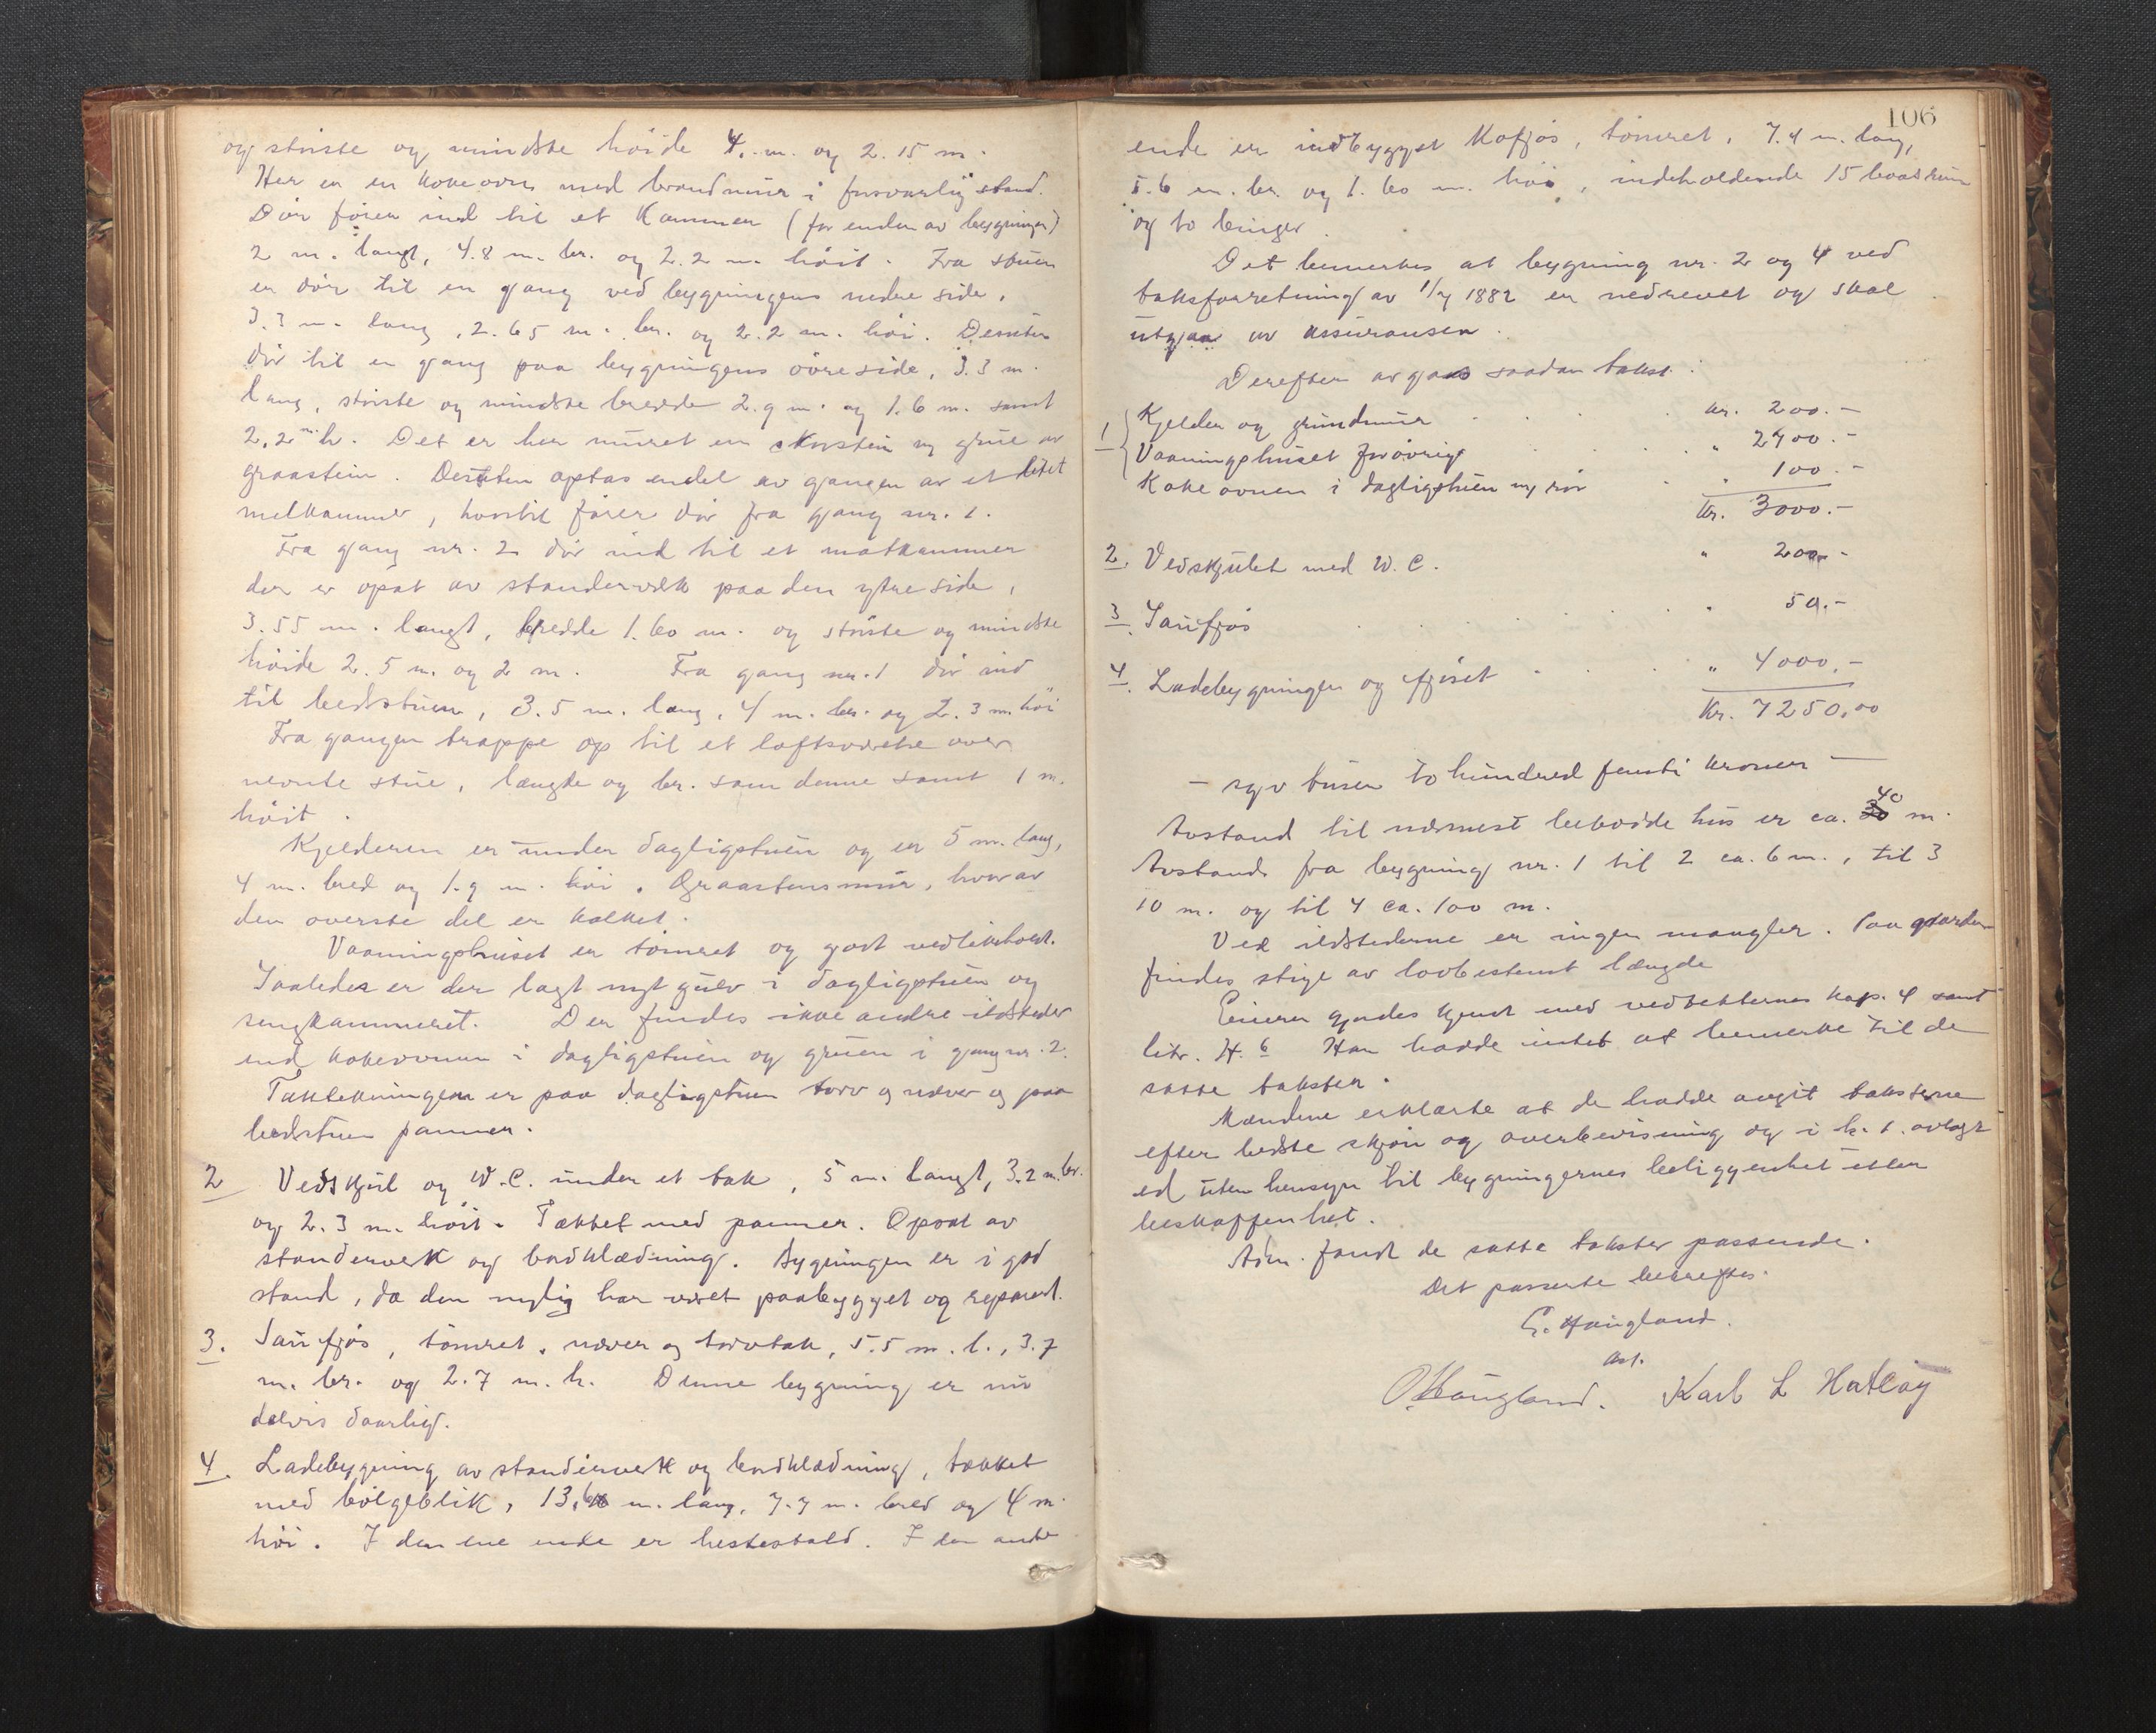 og störste og mindste höide 4,- m. og 2.15 m.
Her er en kokeovn med brandmur i forsvarlig stand.
Dör förer ind til et Kammer (for enden av bygningen)
2 m. langt, 4.8 m. br. og 2.2 m. höit. Fra stuen
er dör til en gang ved bygningens nedre side,
3.3 m. lang, 2.65 m. br. og 2.2 m. höi. Desuten
dör til en gang paa bygningens övre side, 3.3 m.
lang, störste og mindste bredde 2.9 m. og 1.6 m. samt
2,2 m. h. Det er her muret en skorstein og grue av
graastein. Desuten optas endel av gangen av et litet
melkammer, hvortil förer dör fra gang nr. 1.
Fra gang nr. 2 dör ind til et matkammer
der er opsat av standerverk paa den ytre side,
3.55 m. langt, bredde 1.60 m. og störste og mindste
höide 2.5 m. og 2 m. Fra gang nr. 1 dör ind
til bedstuen, 3.5 m. lang, 4 m. br. og 2.3 m. höi
Fra gangen trappe op til et loftsværelse over
nevnte stue, længde og br. som denne samt 1 m.
höit.
Kjelderen er under dagligstuen og er 5 m. lang,
4 m. bred og 1.9 m. höi. Graastensmur, hvorav
den överste del er kalket.
Vaaningshuset er tömret og godt vedlikeholdt.
Saaledes er der lagt nyt gulv i dagligstuen og
sengkammeret. Der findes ikke andre ildsteder
end kokeovnen i dagligstuen og gruen i gang nr. 2.
Taktekningen er paa dagligstuen torv og næver og paa
bedstuen panner.
2 Vedskjul og W.C. under et tak, 5 m. langt, 3.2 m. br.
og 2.3 m. höit. Tækket med panner. Opsat av
standerverk og bordklædning. Bygningen er i god
stand, da den nylig har været paabygget og reparert.
3. Saufjös, tömret, næver og torvtak, 5.5 m. l., 3.7
m. br. og 2.7 m. h. Denne bygning er nu
delvis daarlig.
4. Ladebygning av standerverk og bordklædning, tækket
med bölgeblik, 13,6 m. lang, 7.7 m. bred og 4 m.
höi. I den ene ende er hestestald. I den andre
106
ende er indbygget Kofjös, tömret, 7.4 m. lang,
5.6 m. br. og 1.60 m. höi, indeholdende 15 baasrum
og to binger.
Det bemerkes at bygning nr. 2 og 4 ved
taksforretning av 1/7 1882 er nedrevet og skal
utgaa av assuransen.
Derefter avgaves saadan takst:
1 Kjelder og grundmur kr. 200.-
Vaaningshuset forövrigt " 2700.-
Kokeovnen i dagligstuen og rör " 100.-
Kr. 3000.-
2. Vedskjulet med W.C. " 200.-
3. Saufjös " 50.-
4. Ladebygningen og fjöset " 4000.-
Kr. 7250,00
- syv tusen to hundred femti kroner -
Avstand til nærmest bebodde hus er ca. 40 m.
Avstand fra bygning nr. 1 til 2 ca. 6 m., til 3
10 m. og til 4 ca. 100 m.
Ved ildstederne er ingen mangler. Paa gaarden
findes stige av lovbestemt længde
Eieren gjordes kjendt med vedtekternes kap. 4 samt
litr. H. 6 Han hadde intet at bemerke til de
satte takster.
Mændene erklærte at de hadde avgit taksterne
efter bedste skjön og overbevisning og i h. t. avlagt
ed uten hensyn til bygningernes beliggenhet eller
beskaffenhet.
Adm. fandt de satte takster passende.
Det passerte bekreftes.
E. Haugland.
ast.
O. Haugland. Karl L Hatlöy